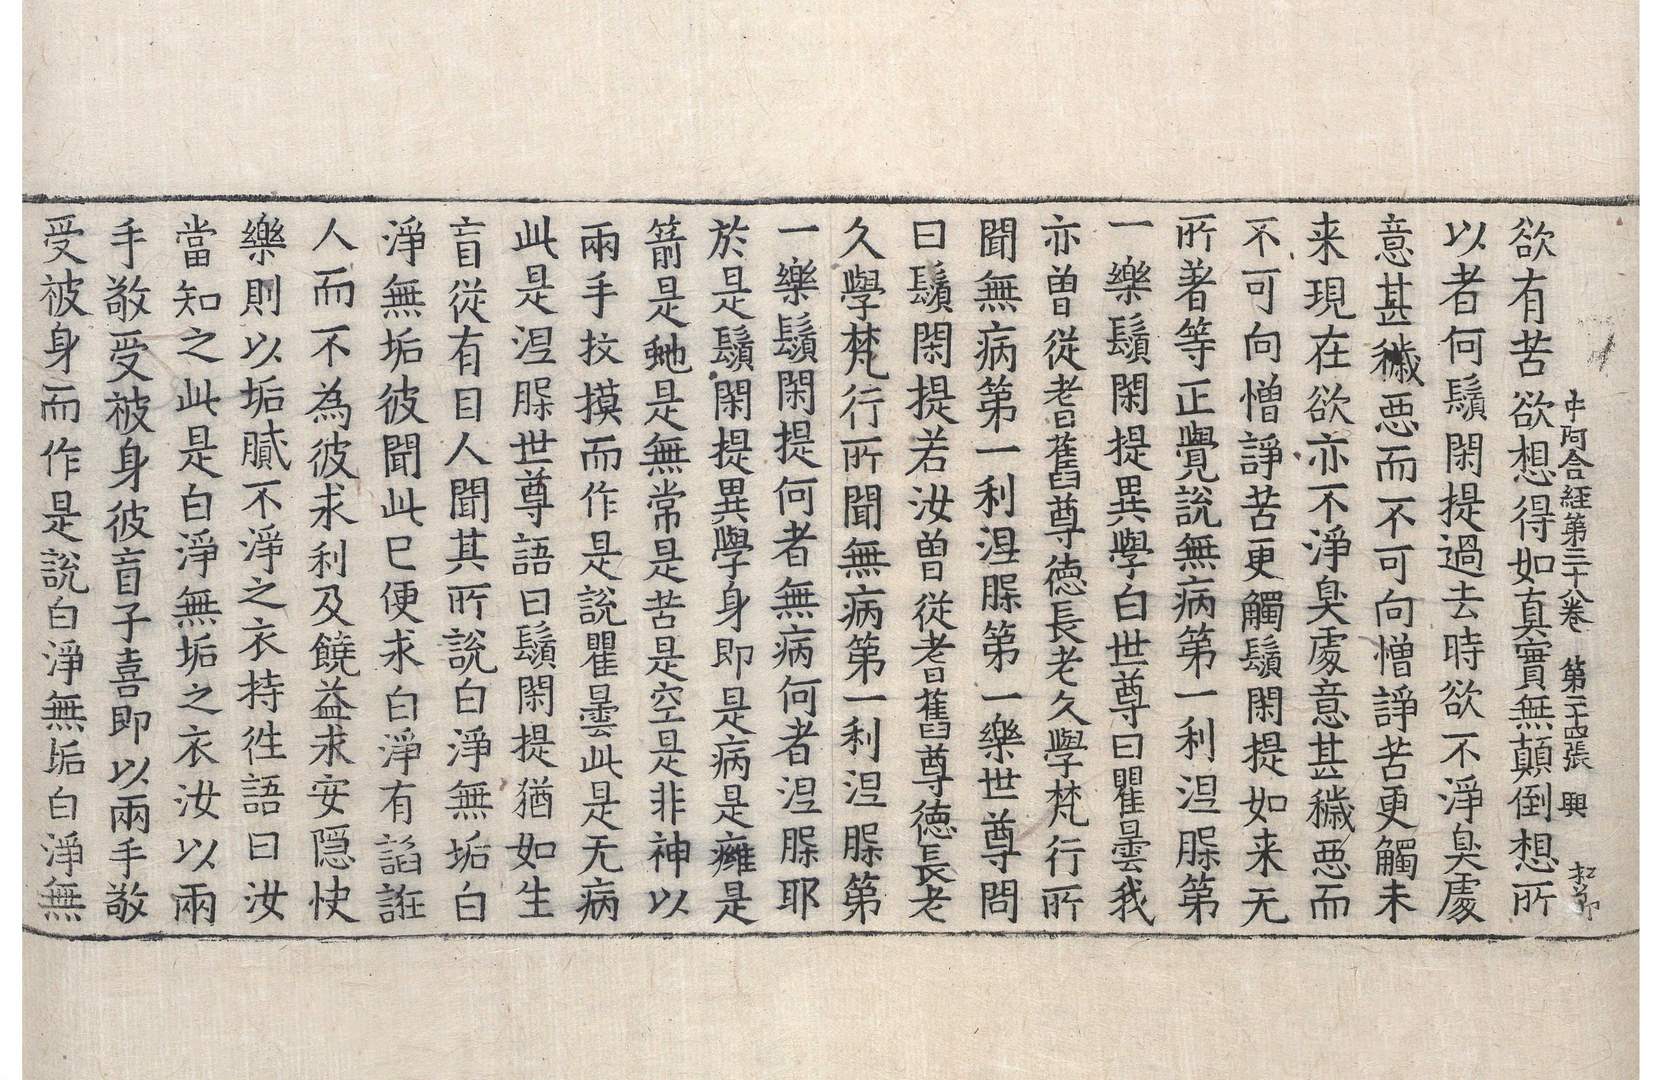 中阿含經第三十八卷 第二十四張 興
欲有苦欲想得如真實無顛倒想所
以者何鬚閑提過去時欲不淨臭處
意甚穢惡而不可向憎諍苦更觸未
来現在欲亦不淨臭處意甚穢惡而
不可向憎諍苦更觸鬚閑提如来无
所著等正覺說無病第一利涅槃第
一樂鬚閑提異學白世尊曰瞿曇我
亦曾從耆舊尊德長老久學梵行所
聞無病第一利涅槃第一樂世尊問
曰鬚閑提若汝曾從耆舊尊德長老
久學梵行所聞無病第一利涅槃第
一樂鬚閑提何者無病何者涅槃耶
於是鬚閑提異學身即是病是癰是
箭是虵是無常是苦是空是非神以
兩手抆摸而作是說瞿曇此是无病
此是涅槃世尊語曰鬚閑提猶如生
盲從有目人聞其所說白淨無垢白
淨無垢彼聞此已便求白淨有諂誑
人而不為彼求利及饒益求安隱快
樂則以垢膩不淨之衣持徃語曰汝
當知之此是白淨無垢之衣汝以兩
手敬受被身彼盲子喜即以兩手敬
受被身而作是說白淨無垢白淨無